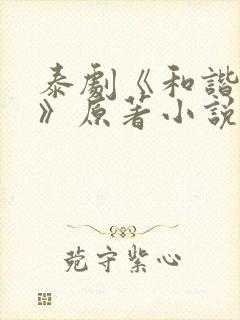 泰劇《和諧
》原著小説
菀守紫心